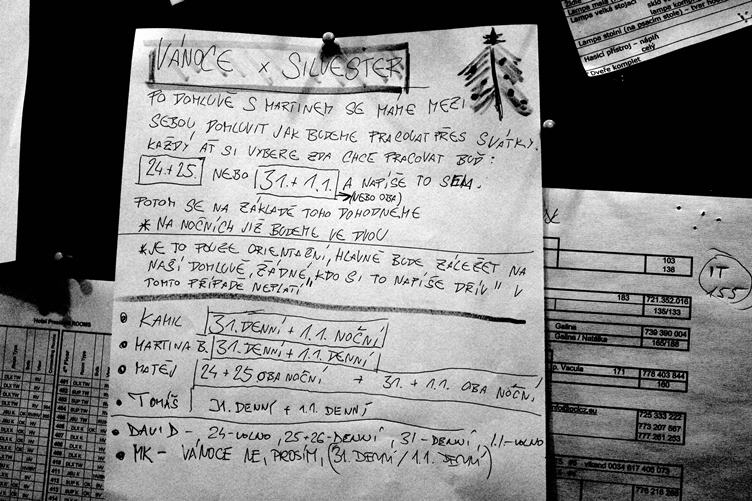 VÁNOCE x SILVESTER
PO DOMLUVĚ S MARTINEM SE MÁME MEZI
SEBOU DOMLUVIT JAK BUDEME PRACOVAT PŘES SVÁTKY.
KAŽDÝ AŤ SI VYBERE ZDA CHCE PRACOVAT BUĎ:
24.+25. NEBO 31.+ 1.1. A NAPÍŠE TO SEM.
(NEBO OBA)
POTOM SE NA ZÁKLADĚ TOHO DOHODNEME
* NA NOČNÍCH JIŽ BUDEME VE DVOU
*JE TO POUZE ORIENTAČNÍ, HLAVNĚ BUDE ZÁLEŽET NA
NAŠÍ DOMLUVĚ, ŽÁDNÉ "KDO SI TO NAPÍŠE DŘÍV" V
TOMTO PŘÍPADĚ NEPLATÍ"
• KAMIL 31. DENNÍ + 1.1. NOČNÍ
• MARTINA B. 31. DENNÍ + 1.1. DENNÍ
• MATĚJ 24 + 25 OBA NOČNÍ + 31. + 1.1. OBA NOČNÍ
• TOMÁŠ 31. DENNÍ + 1.1. DENNÍ
• DAVID - 24-VOLNO, 25+26-DENNÍ, 31-DENNÍ, 1.1-VOLNO
• MK - VÁNOCE NE, PROSÍM, (31. DENNÍ / 1.1. DENNÍ)
Lampa velká stojací
Lampa stolní (na psacím stole) - tvar
Hasicí přístroj - náplň
celý
Dveře komplet
103
138
IT
155
183 721 352 016
135/133
Galina 739 390 004
Galina / Natálka 165/188
p. Vacula 171 778 403 844
160
725 333 222
773 207 867
777 261 253